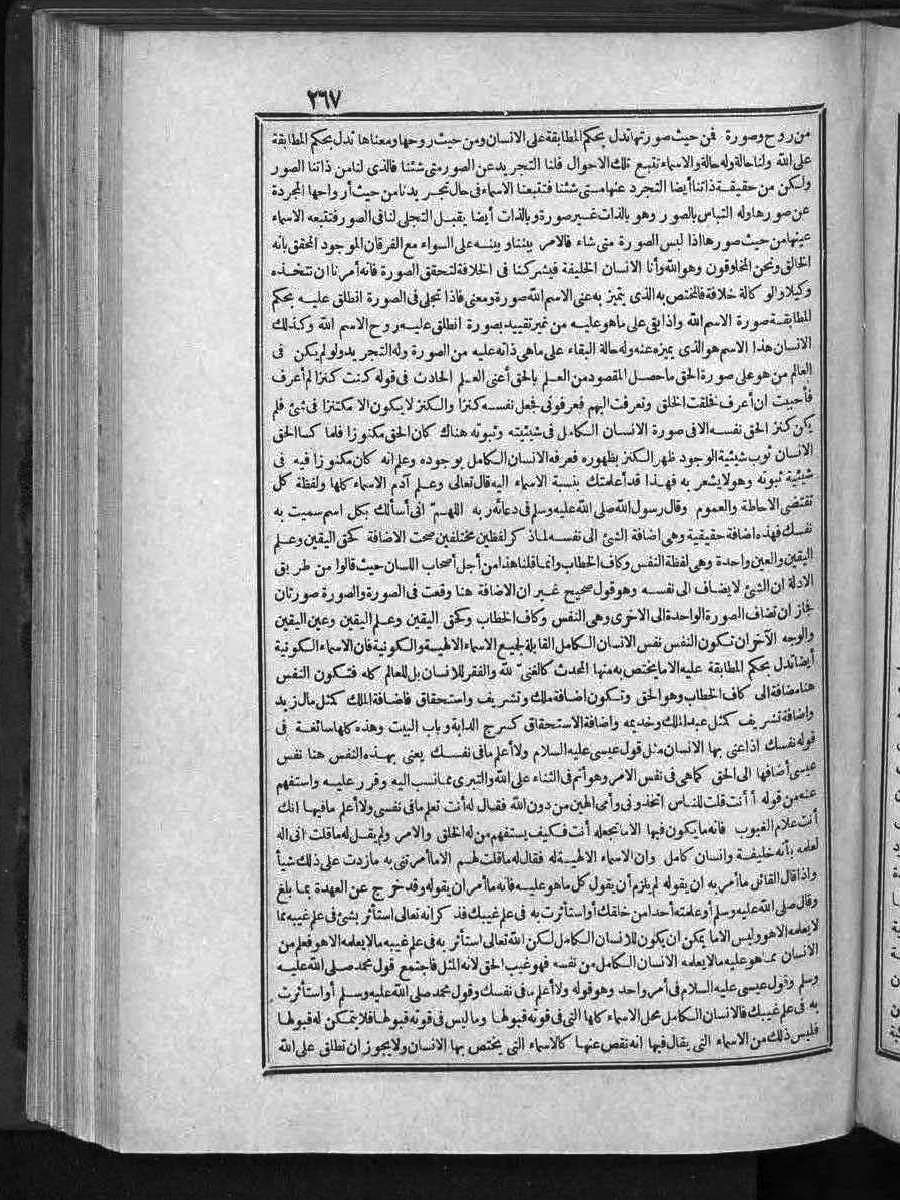 ٢٦٧
من روح وصورة فمن حيث صورتها تدل بحكم المطابقة على الانسان ومن حيث روحها ومعناها تدل بحكم المطابقة
على الله ولنا حالة وله حالة والاسماء تتبع تلك الاحوال فلنا التجريد عن الصور متى شئنا فالذى لنا من ذاتنا الصور
ولكن من حقيقة ذاتنا أيضا التجرد عنها متى شئنا فتتبعنا الاسماء فى حال تجريدنا من حيث أرواحها المجردة
عن صورها وله التباس بالصور وهو بالذات غير صورة وبالذات أيضا يقبل التجلى لنا فى الصور فتتبعه الاسماء
عينها من حيث صورها اذا لبس الصورة متى شاء فالامر بيننا وبينه على السواء مع الفرقان الموجود المحقق بانه
الخالق ونحن المخلوقون وهو الله وأنا الانسان الخليفة فيشركنا فى الخلافة لتحقق الصورة فانه أمرنا ان نتخذه
وكيلا والوكالة خلافة فالمختص به الذى يتميز به عنى الاسم الله صورة ومعنى فاذا تجلى فى الصورة انطلق عليه بحكم
المطابقة صورة الاسم الله واذا بقى على ماهو عليه من غير تقييد بصورة انطلق عليه روح الاسم الله وكذلك
الانسان هذا الاسم هو الذى يميزه عنه وله حالة البقاء على ما هى ذاته عليه من الصورة وله التجريد ولو لم يكن فى
العالم من هو على صورة الحق ما حصل المقصود من العلم بالحق أعنى العلم الحادث فى قوله كنت كنزا لم أعرف
فأحببت ان أعرف فخلقت الخلق وتعرفت اليهم فعرفونى فجعل نفسه كنزا والكنز لا يكون الا مكتنزا فى شئ فلم
يكن كنز الحق نفسه الا فى صورة الانسان الكامل فى شيئيته وثبوته هناك كان الحق مكنوزا فلما كسا الحق
الانسان ثوب شيئية الوجود ظهر الكنز بظهوره فعرفه الانسان الكامل بوجوده وعلم انه كان مكنوزا فيه فى
شيئية ثبوته وهو لا يشعر به فهذا قد أعلمتك بنسبة الاسماء اليه قال تعالى وعلم آدم الاسماء كلها ولفظة كل
تقتضى الاحاطة والعموم وقال رسول الله صلى الله عليه وسلم فى دعائه ربه اللهم انى أسألك بكل اسم سميت به
نفسك فهذه اضافة حقيقية وهى اضافة الشئ الى نفسه لما ذكر لفظين مختلفين صحت الاضافة كحق اليقين وعلم
اليقين والعين واحدة وهى لفظة النفس وكاف الخطاب وانما قلنا هذا من أجل أصحاب اللسان حيث قالوا من طريق
الادلة ان الشئ لا يضاف الى نفسه وهو قول صحيح غير ان الاضافة هنا وقعت فى الصورة والصورة صورتان
فجاز ان تضاف الصورة الواحدة الى الاخرى وهى النفس وكاف الخطاب وكحق اليقين وعلم اليقين وعين اليقين
والوجه الآخر ان تكون النفس نفس الانسان الكامل القابلة لجميع الاسماء الالهية والكونية فان الاسماء الكونية
أيضا تدل بحكم المطابقة عليه الا ما يختص به منها المحدث كالغنى لله والفقر للانسان بل للعالم كله فتكون النفس
هنا مضافة الى كاف الخطاب وهو الحق وتكون اضافة ملك وتشريف واستحقاق فاضافة الملك كمثل مال زيد
واضافة تشريف كمثل عبد الملك وخديمه واضافة الاستحقاق كسرج الدابة وباب البيت وهذه كلها سائغة فى
قوله نفسك اذا عنى بها الانسان مثل قول عيسى عليه السلام ولا أعلم ما فى نفسك يعنى بهذه النفس هنا نفس
عيسى أضافها الى الحق كما هى فى نفس الامر وهو أتم فى الثناء على الله والتبرى مما نسب اليه وقرر عليه واستفهم
عنه من قوله أأنت قلت للناس اتخذونى وأمى الهين من دون الله فقال له أنت تعلم ما فى نفسى ولا أعلم ما فيها انك
أنت علام الغيوب فانه ما يكون فيها الا ما تجعله أنت فكيف يستفهم من له الخلق والامر ولم يقل له ما قلت انى اله
لعلمه بأنه خليفة وانسان كامل وان الاسماء الالهية له فقال له ما قلت لهم الا ما أمرتنى به ما زدت على ذلك شيأ
واذا قال القائل ما أمر به ان يقوله لم يلزم أن يقول كل ما هو عليه فانه ما أمر ان يقوله وقد خرج عن العهدة بما بلغ
وقال صلى الله عليه وسلم أو علمته أحدا من خلقك أو استأثرت به فى علم غيبك فذكر انه تعالى استأثر بشئ فى علم غيبه مما
لا يعلمه الا هو وليس الا ما يمكن ان يكون للانسان الكامل لكن الله تعالى استأثر به فى علم غيبه مما لا يعلمه الا هو فعلم من
الانسان مما هو عليه ما لا يعلمه الانسان الكامل من نفسه فهو غيب الحق لانه المثل فاجتمع قول محمد صلى الله عليه
وسلم وقول عيسى عليه السلام فى أمر واحد وهو قوله ولا أعلم ما فى نفسك وقول محمد صلى الله عليه وسلم أو استأثرت
به فى علم غيبك فالانسان الكامل محل الاسماء كلها التى فى قوته قبولها وما ليس فى قوته قبولها فلا يتمكن له قبولها
فليس ذلك من الاسماء التى يقال فيها انه نقص عنها كالاسماء التى يختص بها الانسان ولا يجوز ان تطلق على الله